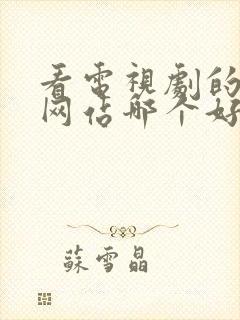 看電視劇的
网估哪个好
蘇雪晶